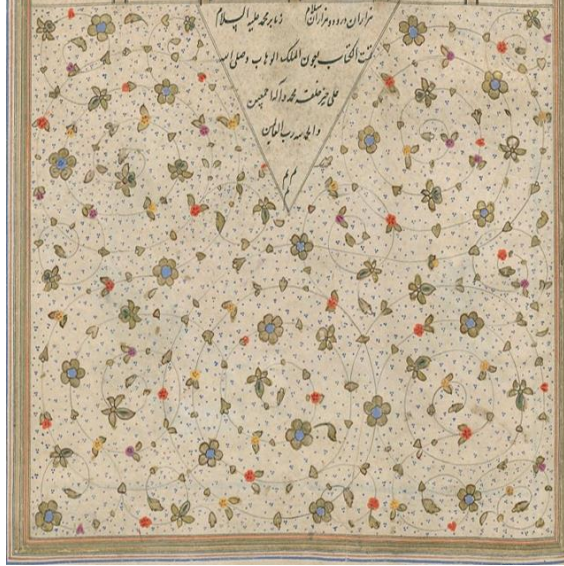 هزاران درود و هزاران سلام ز ما بر محمد علیه السلام
تمت الکتاب بعون الملک الوهاب وصلی الله
علی خیر خلقه محمد و آله اجمعین
والحمد لله رب العالمین
م م م